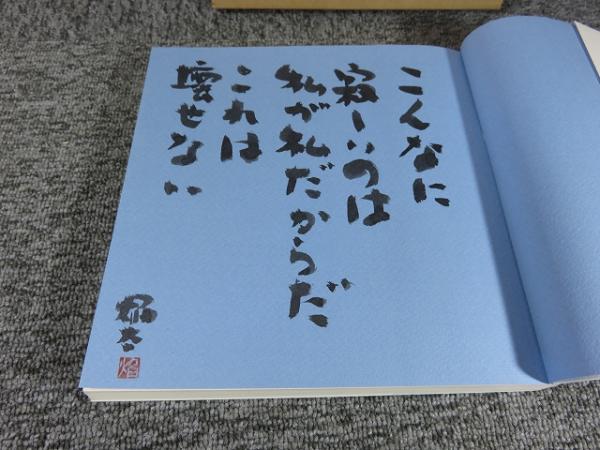 こんなに
寂しいのは
私が私だからだ
これは
壊せない
焔太
焔